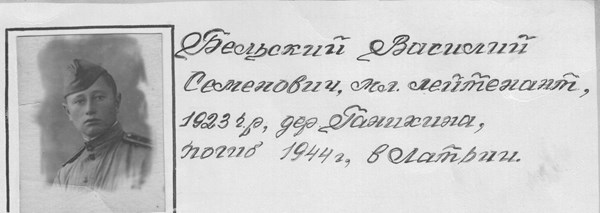 Бельский Василий
Семенович, мл. лейтенант,
1923 г.р, дер Ганихина,
погиб 1944 г, в Латвии.